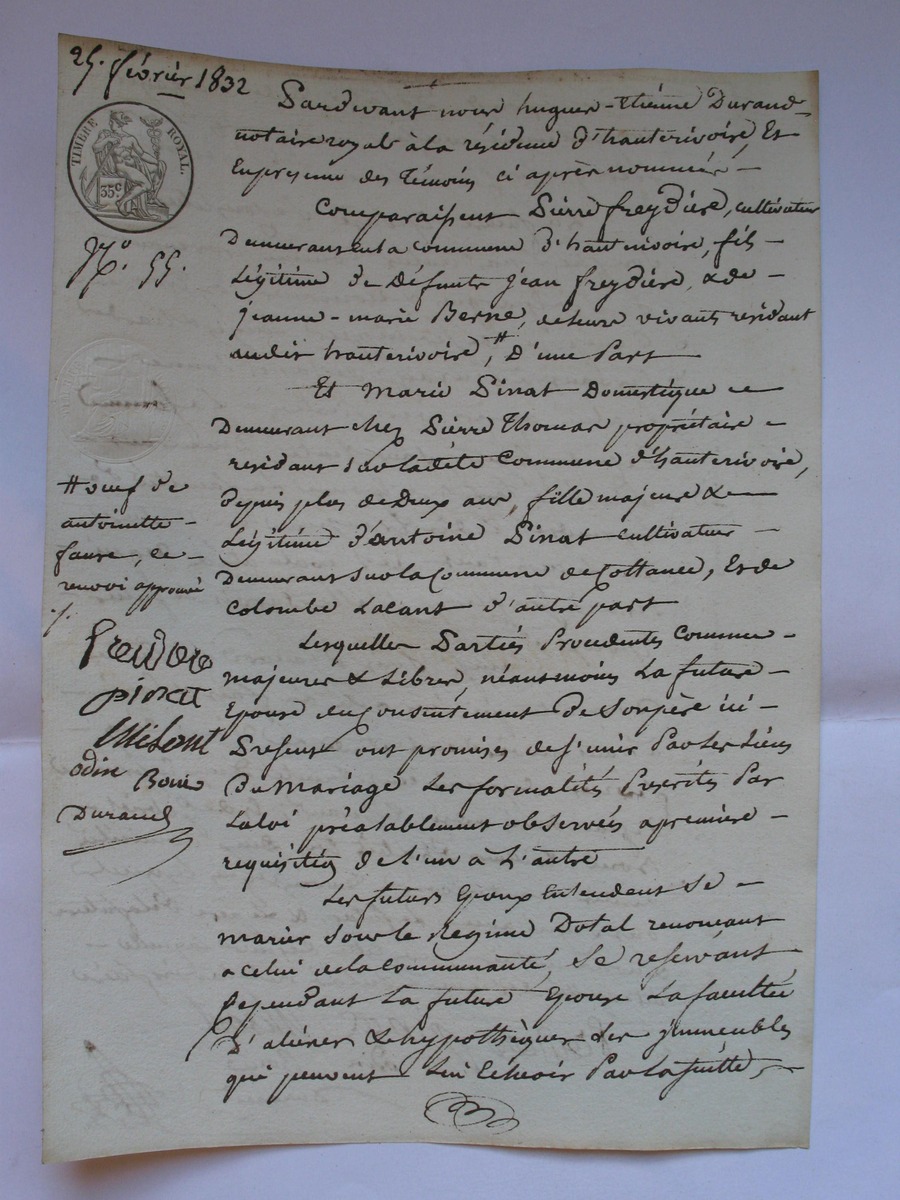 25. février 1832
Pardevant nous hugues-Etienne Durand
notaire royal à la résidence d'hauterivoire, Et
En presence des Témoins ci après nommés
TIMBRE ROYAL.
35c
Comparaissent Pierre freydière, cultivateur
N.º 55.
Demeurant en la commune d'hauterivoire, fils
Légitime de Défunts Jean freydière, & de
jeanne-marie Berne, de leurs vivants residant
audit hauterivoire, # D'une Part
Et Marie Pinat Domestique
Demeurant chez Pierre Thomas propriétaire
residant sur ladite Commune d'hauterivoire,
depuis plus de Deux ans, fille majeure &
Légitime d'antoine Pinat cultivateur
Demeurant sur la Commune de Cottance, Et de
Colombe Lacant d'autre part
# veuf de
antoinette
faure, ce
renvoi approuvé
Lesquelles Parties Procedantes Comme
majeures & Libres, néanmoins La future
Epouse du Consentement De Son père ici
Présent ont promises de s'unir Par Les Liens
Du Mariage Les formalités Prescrites Par
La loi préalablement observées a premiere
requisition de l'un à L'autre
freidiere
pinat
odin
Durand
Les futurs Epoux Entendent Se
marier sous le Regime Dotal renoncant
a celui de la Communauté, Se reservant
Cependant La future Epouse La faculté
D'aliéner & hypothèquer Les immeubles
qui peuvent Lui Echeoir Par La suitte,